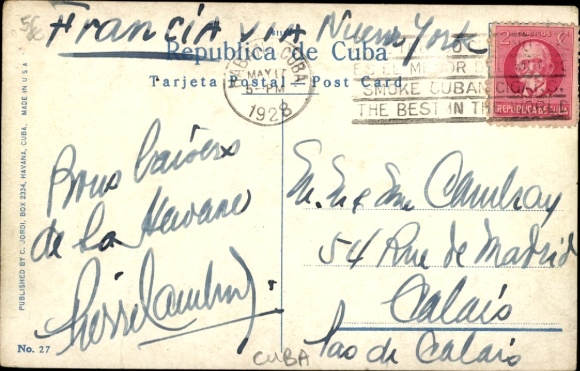 Francia VIA Nueva York
Republica de Cuba
Tarjeta Postal — Post Card
MADE IN U.S.A.
PUBLISHED BY C. JORDI, BOX 2334, HAVANA, CUBA.
No. 27
HABANA, CUBA
MAY 17
PM
1928
ES EL MEJOR
SMOKE CUBAN CIGARS.
THE BEST IN THE
REPUBLICA DE CUBA
2
Bons baisers
de La Havane
Pierre Cambray
M. et Me Cambray
54 Rue de Madrid
Calais
Pas de Calais
CUBA